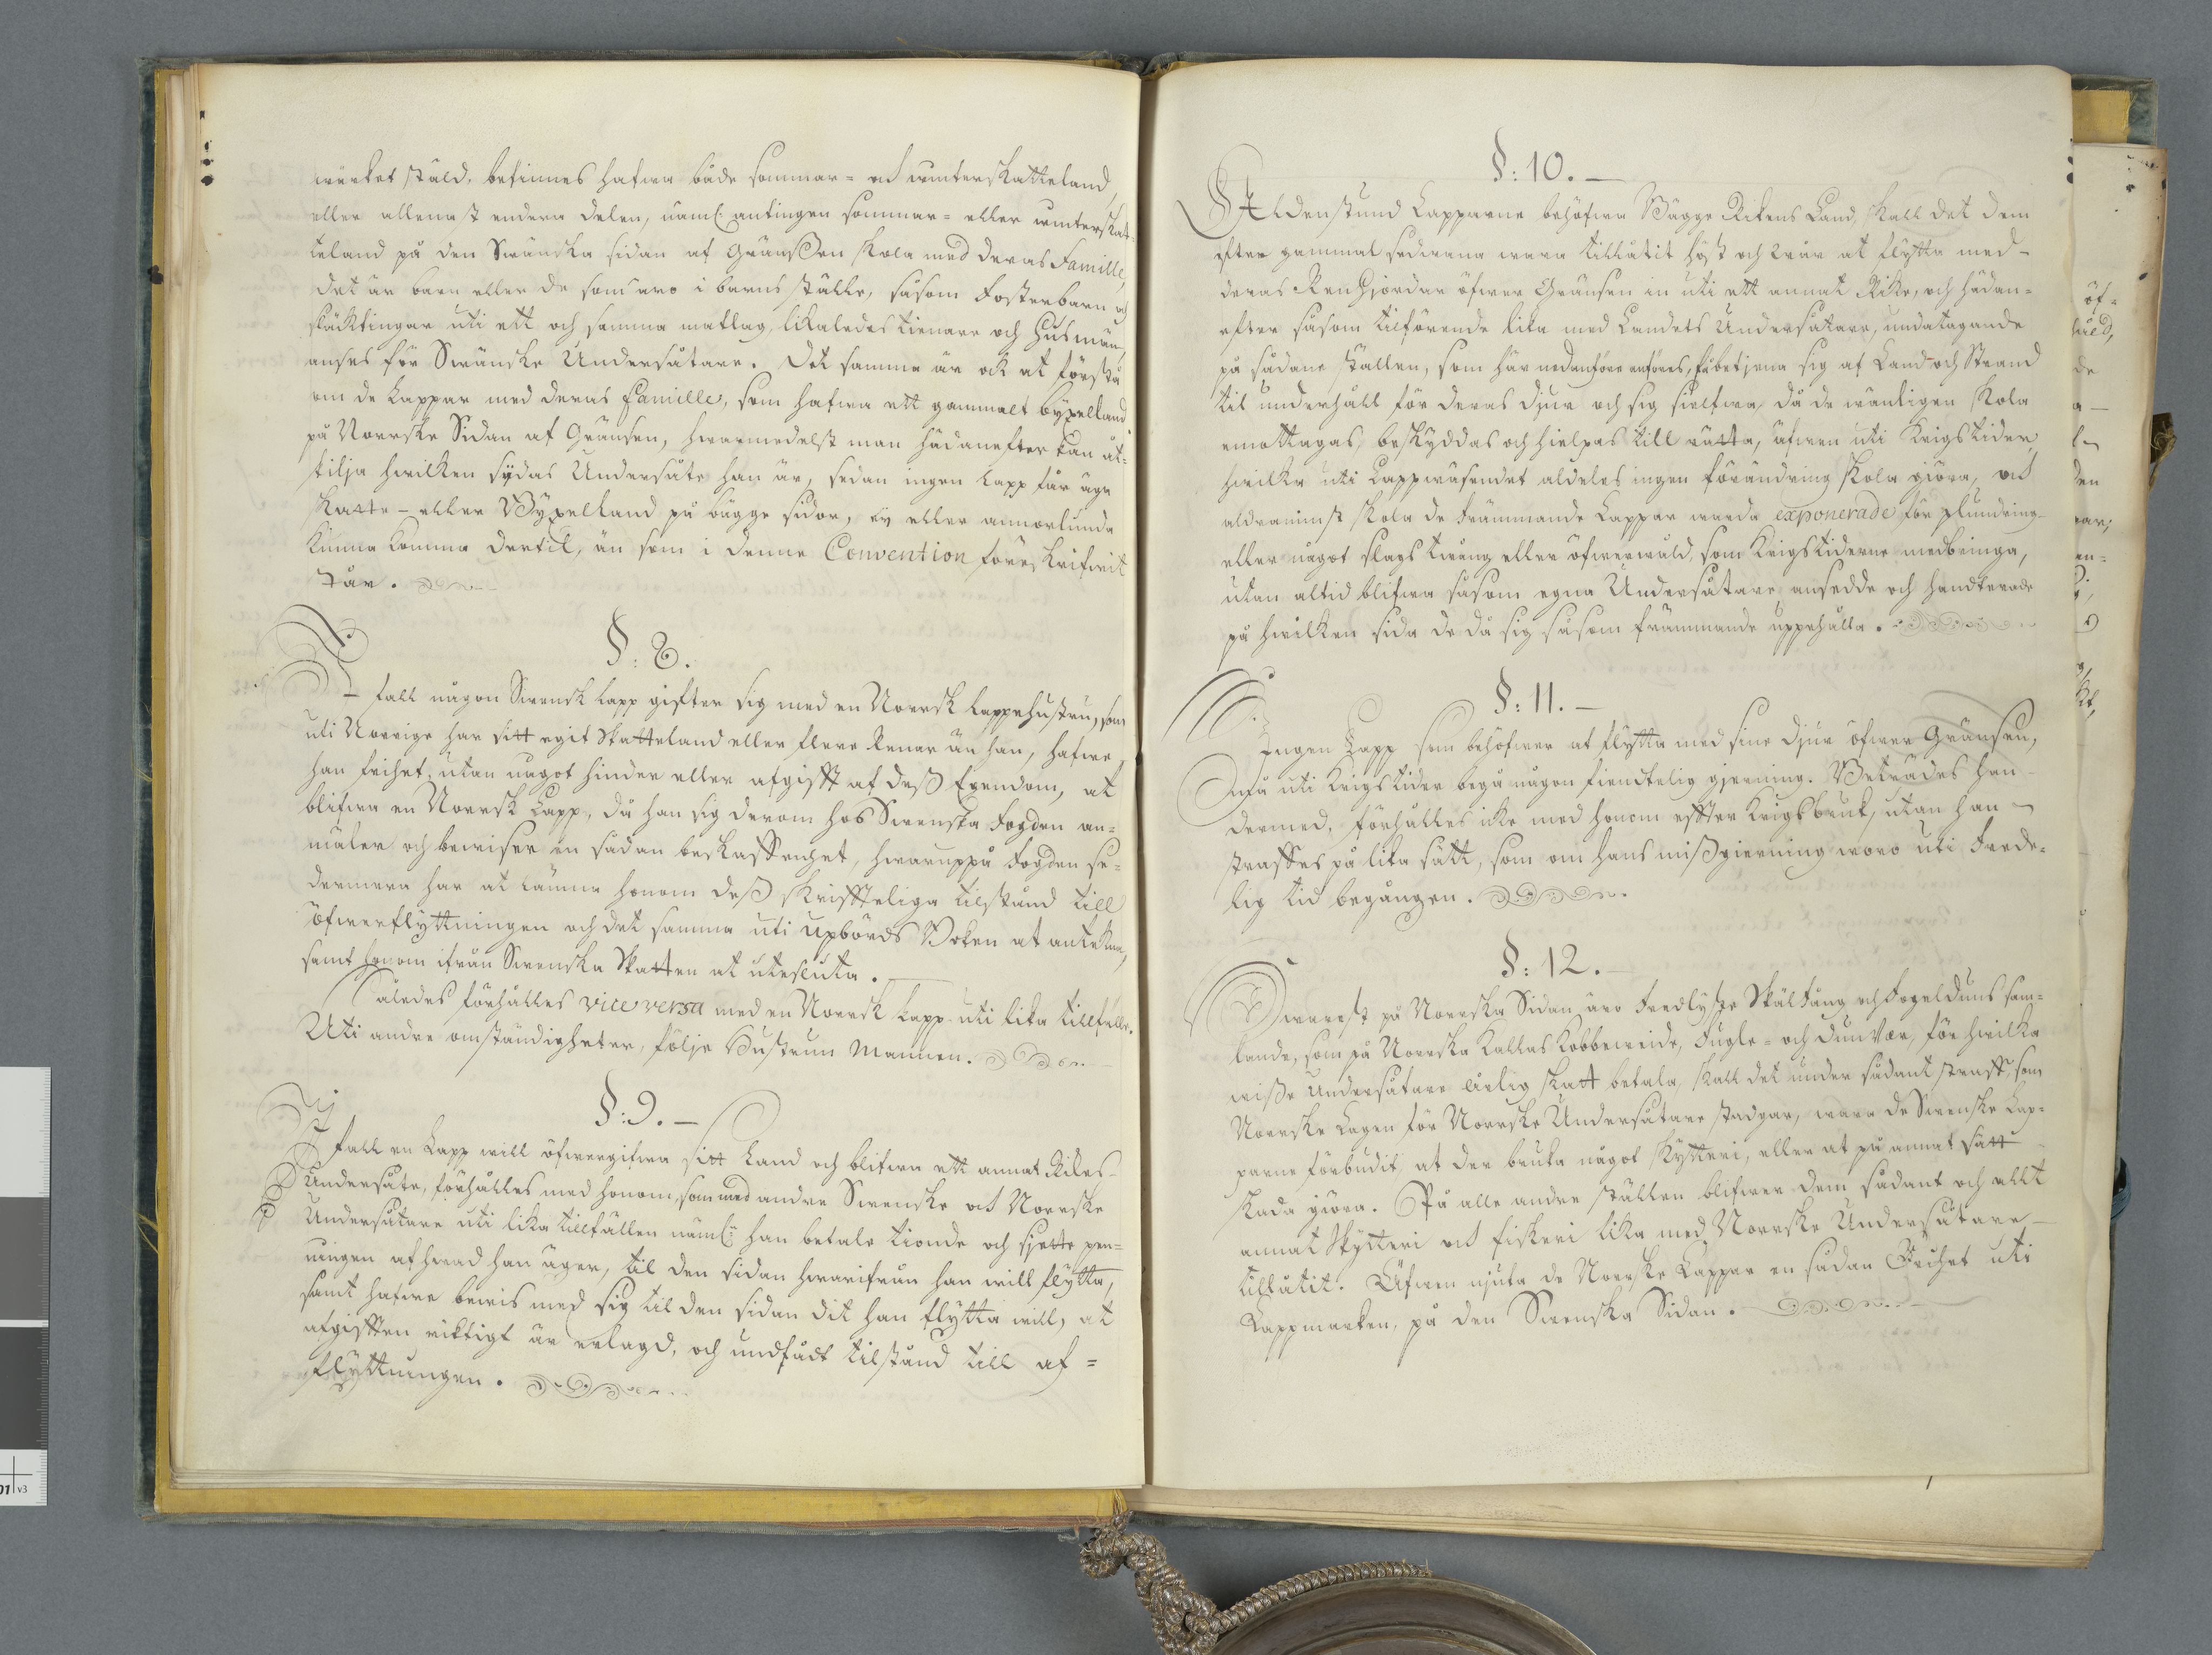 werket ståld, befinnes hafwa både sommar= och winterskatteland,
eller allenast endera delen, näml: antingen sommar= eller winterskat-
teland på den Swänska sidan af Gränssen skola med deras Famille,
det är barn eller de som äro i barns ställe, såsom Fosterbarn och
släktingar uti ett och samma matlag, likaledes tienare och Husmän,
anses för Swänske Undersåtare. Det samma är ock at förstå
om de Lappar med deras famille, som hafwa ett gammalt byxelland
på Norrske Sidan af Gränsen, hwarmedelst man hädanefter kan åt-
skilja hwilken sydas Undersåte han är, sedan ingen Lapp får äga
Skatte- eller Byxelland på bägge sidor, ey eller annorlunda
kunna komma dertil, än som i denne Convention föreskrifwit
står.
§: 8.
I fall någon Swensk Lapp gifter sig med en Norrsk Lappehustru, som
uti Norrige har sitt egit Skatteland eller flere Renar än han, hafwe
han frihet, utan något hinder eller afgifft af dess Egendom, at
blifwa en Norrsk Lapp, då han sig derom hos Swenska Fogden an=
mäler och bewiser en sådan beskaffenhet, hwaruppå Fogden se=
dermera har at lämna honom dess skriffteliga tilstånd till
öfwerflyttningen och det samma uti Upbörds Boken at antekna,
samt honom ifrån Swenska Skatten at utesluta.
Således förhålles vice versa med en Norrsk Lapp uti lika tillfälle.
Uti andre omständigheter, följe Hustrun Mannen.
§: 9.
I fall en Lapp will öfwergifwa sitt Land och blifwa ett annat Rikes
Undersåte, förhålles med honom, som med andre Swenske och Norrske
Undersåtare uti lika tillfällen näml: han betale tionde och sjette pen=
ningen af hwad han äger, til den sidan hwarifrån han will flytta,
samt hafwe bewis med sig til den sidan dit han flytta will, at
afgifften riktigt är erlagd, och undfådt tilstånd till af=
flyttningen.
§: 10.
Aldenstund Lapparne behöfwa Bägge Rikens Land, skall det dem
efter gammal sedwana wara tillåtit höst och wår at flytta med
deras Ren Hjordar öfwer Gränsen in uti ett annat Rike, och hädan=
efter såsom tilförende lika med Landets Undersåtare, undatagande
på sådane ställen, som här nedanföre anföres, få betjena sig af Land och Strand
til underhåll för deras Djur och sig sielfwa, då de wänligen skola
emottagas, beskyddas och hielpas till rätta, äfwen uti Krigstider,
hwilka uti Lappwäsendet aldeles ingen förändring skola giöra, och
aldraminst skola de Främmande Lappar warda exponerade för plundring
eller något slags twång eller öfwerwåld, som Krigstiderne medbringa,
utan altid blifwa såsom egna Undersåtare, ansedde och handterade
på hwilken sida de då sig såsom främmande uppehålla.
§: 11.
Ingen Lapp som behöfwer at flytta med sine Djur öfwer Gränsen,
må uti Krigstider begå någon fiendtelig gjerning. Beträdes han
dermed, förhålles icke med honom effter Krigsbruk, utan han
straffes på lika sätt, som om hans missgierning wore uti Frede=
lig tid begången.
§: 12.
Hwarest på Norrska Sidan äro Fredlyste Skälfång och Fogelduns sam-
lande, som på Norrska kallas Kobbeweide, Fugle= och Dun Vær, för hwilka
wisse Undersåtare årlig skatt betala, skall det under sådant straff, som
Norrske Lagen för Norrske Undersåtare stadgar, wara de Swenske Lap=
parne förbudit, at der bruka något Skytteri, eller at på annat sätt
skada giöra. På alle andre ställen blifwer dem sådant och allt
annat Skytteri och fiskeri lika med Norrske Undersåtare
tillåtit. Äfwen njuta de Norrske Lappar en sådan Frihet uti
Lappmarken, på den Swenska Sidan.